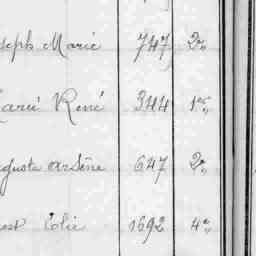 seph Marie 747 2e
Marie René 344 1e
guste Arsène 647 2e
est Elie 1692 4e